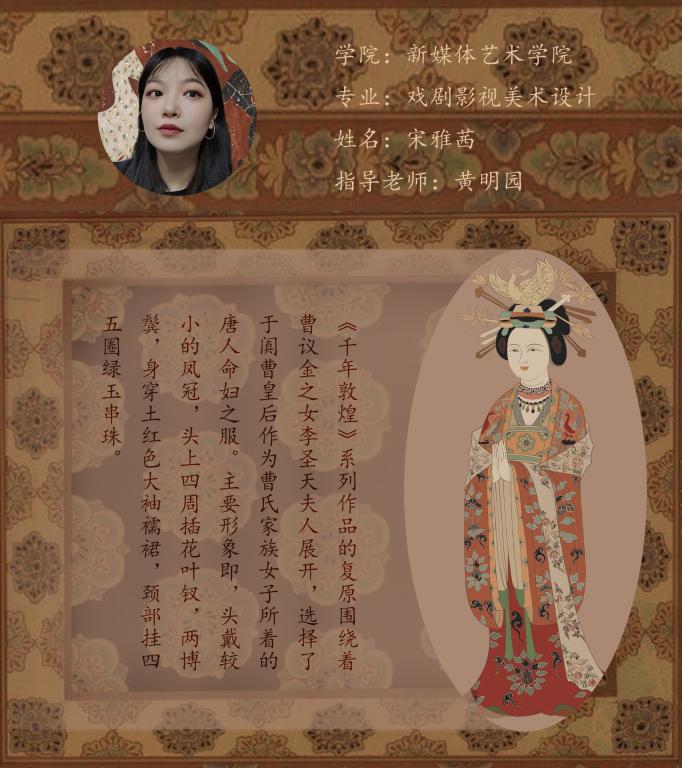 学院：新媒体艺术学院
专业：戏剧影视美术设计
姓名：宋雅茜
指导老师：黄明园
《千年敦煌》系列作品的复原围绕着
曹议金之女李圣天夫人展开，选择了
于阗曹皇后作为曹氏家族女子所着的
唐人命妇之服。主要形象即，头戴较
小的凤冠，头上四周插花叶钗，两博
鬓，身穿土红色大袖襦裙，颈部挂四
五圈绿玉串珠。